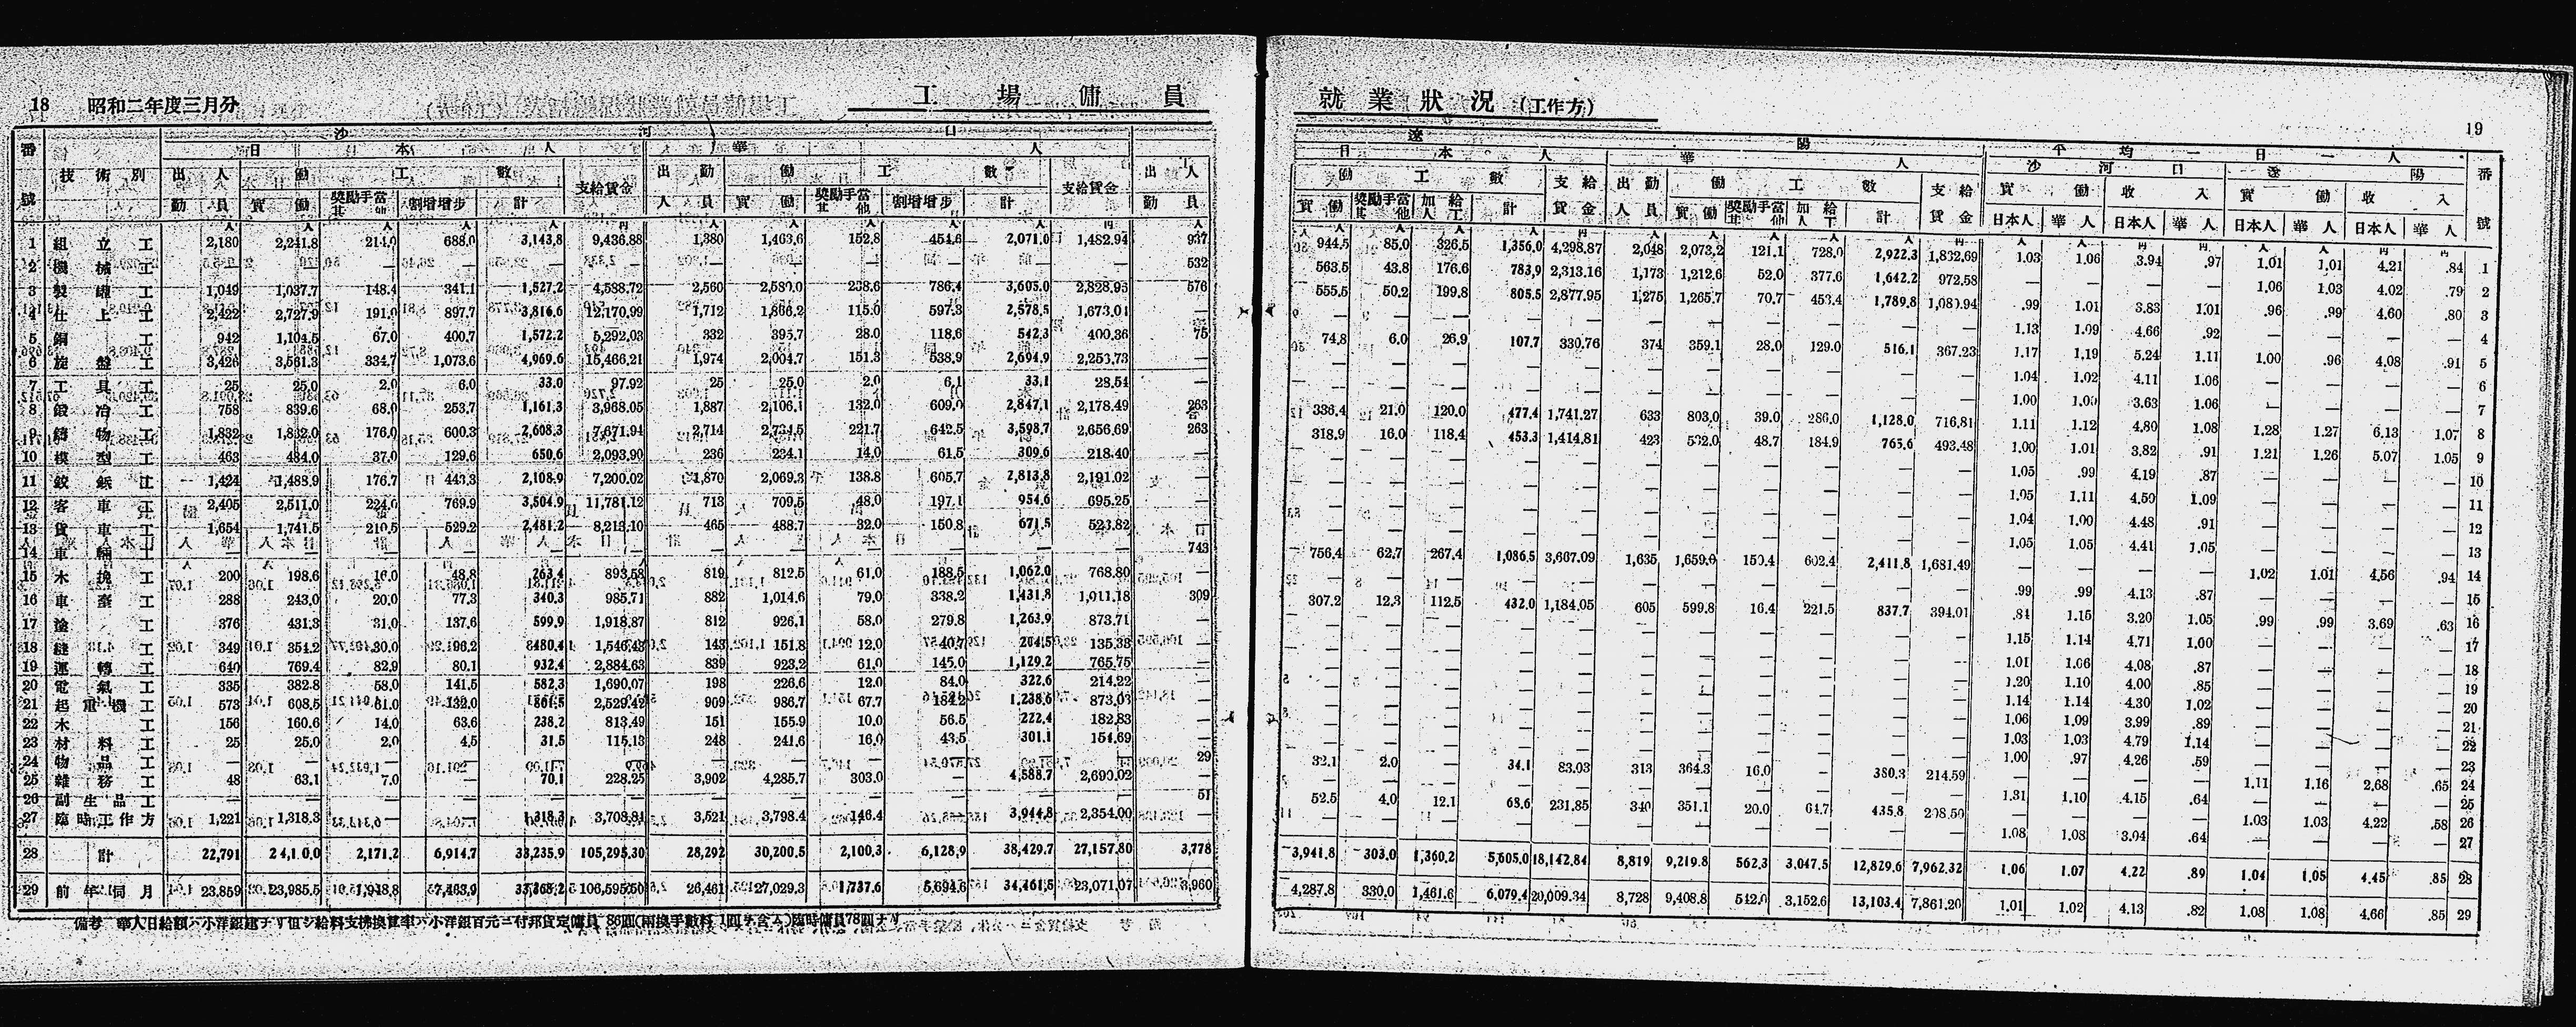 18 昭和二年度三月分 工場傭員
就業狀況 (工作方)
19
番號 技術別 沙河口
日本人 華人
出勤人員 働工數 支給賃金 出勤人員 働工數 支給賃金 出勤人員
實働 獎勵手當其他 割增增步 計 實働 獎勵手當其他 割增增步 計
1 組立工 2,180 2,241.8 214.0 688.0 3,143.8 9,436.88 1,380 1,463.6 152.8 454.6 2,071.0 1,482.94 937
2 機械工 — — — — — — — — — — — — 532
3 製罐工 1,049 1,037.7 148.4 341.1 1,527.2 4,588.72 2,560 2,580.0 238.6 786.4 3,605.0 2,828.95 576
4 仕上工 2,422 2,727.9 191.0 897.7 3,816.6 12,170.99 1,712 1,866.2 115.0 597.3 2,578.5 1,673.01 —
5 銅工 942 1,104.5 67.0 400.7 1,572.2 5,292.03 332 395.7 28.0 118.6 542.3 400.36 75
6 旋盤工 3,426 3,561.3 334.7 1,073.6 4,969.6 15,466.21 1,974 2,004.7 151.3 538.9 2,694.9 2,253.73 —
7 工具工 25 25.0 2.0 6.0 33.0 97.92 25 25.0 2.0 6.1 33.1 28.54 —
8 鍛冶工 758 839.6 68.0 253.7 1,161.3 3,968.05 1,887 2,106.1 132.0 609.0 2,847.1 2,178.49 263
9 鑄物工 1,832 1,832.0 176.0 600.3 2,608.3 7,671.94 2,714 2,734.5 221.7 642.5 3,598.7 2,656.69 263
10 模型工 463 484.0 37.0 129.6 650.6 2,093.90 236 234.1 14.0 61.5 309.6 218.40 —
11 鉸鋲工 1,424 1,488.9 176.7 443.3 2,108.9 7,200.02 1,870 2,069.3 138.8 605.7 2,813.8 2,191.02 —
12 客車工 2,405 2,511.0 224.0 769.9 3,504.9 11,781.12 713 709.5 48.0 197.1 954.6 695.25 —
13 貨車工 1,654 1,741.5 210.5 529.2 2,481.2 8,213.10 465 488.7 32.0 150.8 671.5 523.82 —
14 車輛工 — — — — — — — — — — — — 743
15 木挽工 200 198.6 16.0 48.8 263.4 893.58 819 812.5 61.0 188.5 1,062.0 768.80 —
16 車臺工 288 243.0 20.0 77.3 340.3 985.71 882 1,014.6 79.0 338.2 1,431.8 1,011.18 309
17 塗工 376 431.3 31.0 137.6 599.9 1,918.87 812 926.1 58.0 279.8 1,263.9 873.71 —
18 縫工 349 354.2 30.0 96.2 480.4 1,546.43 143 151.8 12.0 40.7 204.5 135.33 —
19 運轉工 640 769.4 82.9 80.1 932.4 2,884.63 839 923.2 61.0 145.0 1,129.2 765.75 —
20 電氣工 335 382.8 58.0 141.5 582.3 1,690.07 198 226.6 12.0 84.0 322.6 214.22 —
21 起電機工 573 608.5 61.0 132.0 801.5 2,529.42 909 986.7 67.7 184.2 1,238.6 873.03 —
22 木工 156 160.6 14.0 63.6 238.2 813.49 151 155.9 10.0 56.5 222.4 182.83 —
23 材料工 25 25.0 2.0 4.5 31.5 115.13 248 241.6 16.0 43.5 301.1 154.69 —
24 物品工 — — — — — — — — — — — — 29
25 雜務工 48 63.1 7.0 — 70.1 228.25 3,902 4,285.7 303.0 — 4,588.7 2,690.02 —
26 副生品工 — — — — — — — — — — — — 51
27 臨時工作方 1,221 1,318.3 — — 1,318.3 3,708.81 3,521 3,798.4 146.4 — 3,944.8 2,354.00 —
28 計 22,791 24,150.0 2,171.2 6,914.7 33,235.9 105,295.30 28,292 30,200.5 2,100.3 6,128.9 38,429.7 27,157.80 3,778
29 前年同月 23,859 23,985.5 1,948.8 7,463.9 106,595.50 26,461 27,029.3 1,737.6 5,694.6 34,461.5 23,071.07 3,960
備考 華人日給額ハ小洋銀建ナリ但シ給料支拂換算率ハ小洋銀百元ニ付邦貨定傭員 86圓(兩換手數料 1圓ヲ含ム)臨時傭員78圓ナリ
遼陽 平均一日一人
日本人 華人 沙河口 遼陽 番號
働工數 支給賃金 出勤人員 働工數 支給賃金 實働 收入 實働 收入
實働 獎勵手當其他 加給人工 計 實働 獎勵手當其他 加給人工 計 日本人 華人 日本人 華人 日本人 華人 日本人 華人
944.5 85.0 326.5 1,356.0 4,298.87 2,048 2,073.2 121.1 728.0 2,922.3 1,832.69 1.03 1.06 3.94 .97 1.01 1.01 4.21 .84 1
563.5 43.8 176.6 783.9 2,313.16 1,173 1,212.6 52.0 377.6 1,642.2 972.58 — — — — 1.06 1.03 4.02 .79 2
555.5 50.2 199.8 805.5 2,877.95 1,275 1,265.7 70.7 453.4 1,789.8 1,080.94 .99 1.01 3.83 1.01 .96 .99 4.60 .80 3
— — — — — — — — — — — 1.13 1.09 4.66 .92 — — — — 4
74.8 6.0 26.9 107.7 330.76 374 359.1 28.0 129.0 516.1 367.23 1.17 1.19 5.24 1.11 1.00 .96 4.08 .91 5
— — — — — — — — — — — 1.04 1.02 4.11 1.06 — — — — 6
— — — — — — — — — — — 1.00 1.00 3.63 1.06 — — — — 7
336.4 21.0 120.0 477.4 1,741.27 633 803.0 39.0 286.0 1,128.0 716.81 1.11 1.12 4.80 1.08 1.28 1.27 6.13 1.07 8
318.9 16.0 118.4 453.3 1,414.81 423 532.0 48.7 184.9 765.6 493.48 1.00 1.01 3.82 .91 1.21 1.26 5.07 1.05 9
— — — — — — — — — — — 1.05 .99 4.19 .87 — — — — 10
— — — — — — — — — — — 1.05 1.11 4.50 1.09 — — — — 11
— — — — — — — — — — — 1.04 1.00 4.48 .91 — — — — 12
— — — — — — — — — — — 1.05 1.05 4.41 1.05 — — — — 13
756.4 62.7 267.4 1,086.5 3,667.09 1,635 1,659.0 150.4 602.4 2,411.8 1,681.49 — — — — 1.02 1.01 4.56 .94 14
— — — — — — — — — — — .99 .99 4.13 .87 — — — — 15
307.2 12.3 112.5 432.0 1,184.05 605 599.8 16.4 221.5 837.7 394.01 .84 1.15 3.20 1.05 .99 .99 3.69 .63 16
— — — — — — — — — — — 1.15 1.14 4.71 1.00 — — — — 17
— — — — — — — — — — — 1.01 1.06 4.08 .87 — — — — 18
— — — — — — — — — — — 1.20 1.10 4.00 .85 — — — — 19
— — — — — — — — — — — 1.14 1.14 4.30 1.02 — — — — 20
— — — — — — — — — — — 1.06 1.09 3.99 .89 — — — — 21
— — — — — — — — — — — 1.03 1.03 4.79 1.14 — — — — 22
— — — — — — — — — — — 1.00 .97 4.26 .59 — — — — 23
32.1 2.0 — 34.1 83.03 313 364.3 16.0 — 380.3 214.59 — — — — 1.11 1.16 2.68 .65 24
— — — — — — — — — — — 1.31 1.10 4.15 .64 — — — — 25
52.5 4.0 12.1 68.6 231.85 340 351.1 20.0 64.7 435.8 208.50 — — — — 1.03 1.03 4.22 .58 26
— — — — — — — — — — — 1.08 1.08 3.04 .64 — — — — 27
3,941.8 303.0 1,360.2 5,605.0 18,142.84 8,819 9,219.8 562.3 3,047.5 12,829.6 7,962.32 1.06 1.07 4.22 .89 1.04 1.05 4.45 .85 28
4,287.8 330.0 1,461.6 6,079.4 20,009.34 8,728 9,408.8 542.0 3,152.6 13,103.4 7,861.20 1.01 1.02 4.13 .82 1.08 1.08 4.66 .85 29